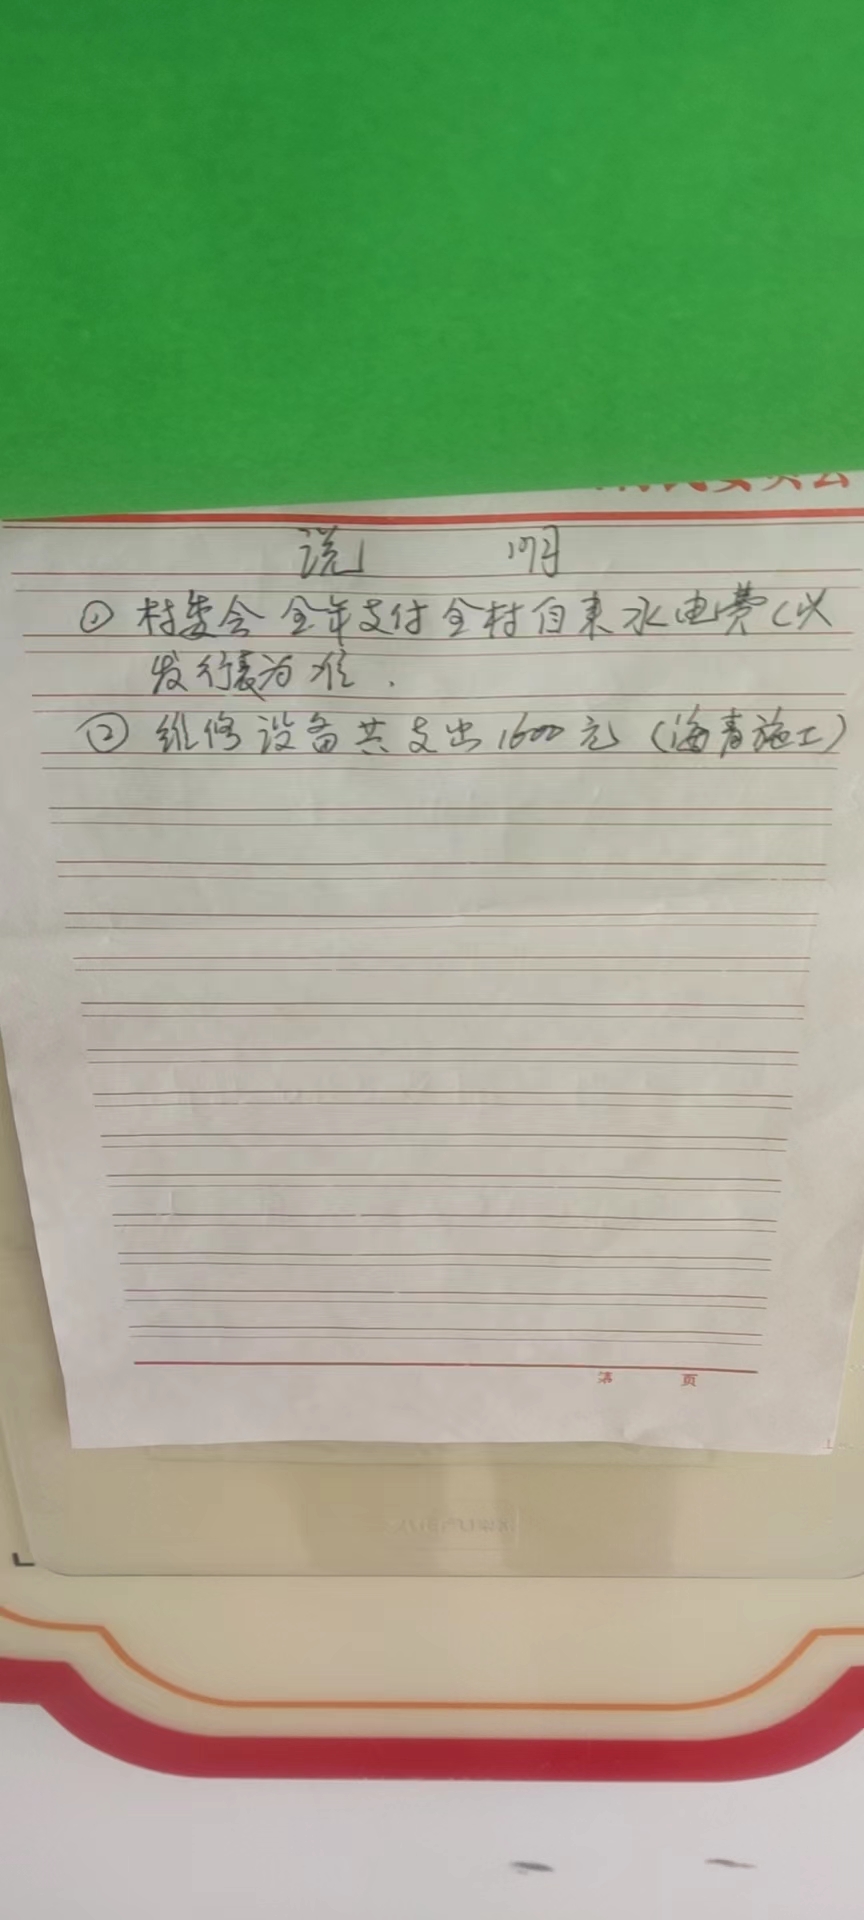 说 明
① 村委会全年支付全村自来水电费(以
发行表为准.
② 维修设备共支出1600元(海青施工)
第 页